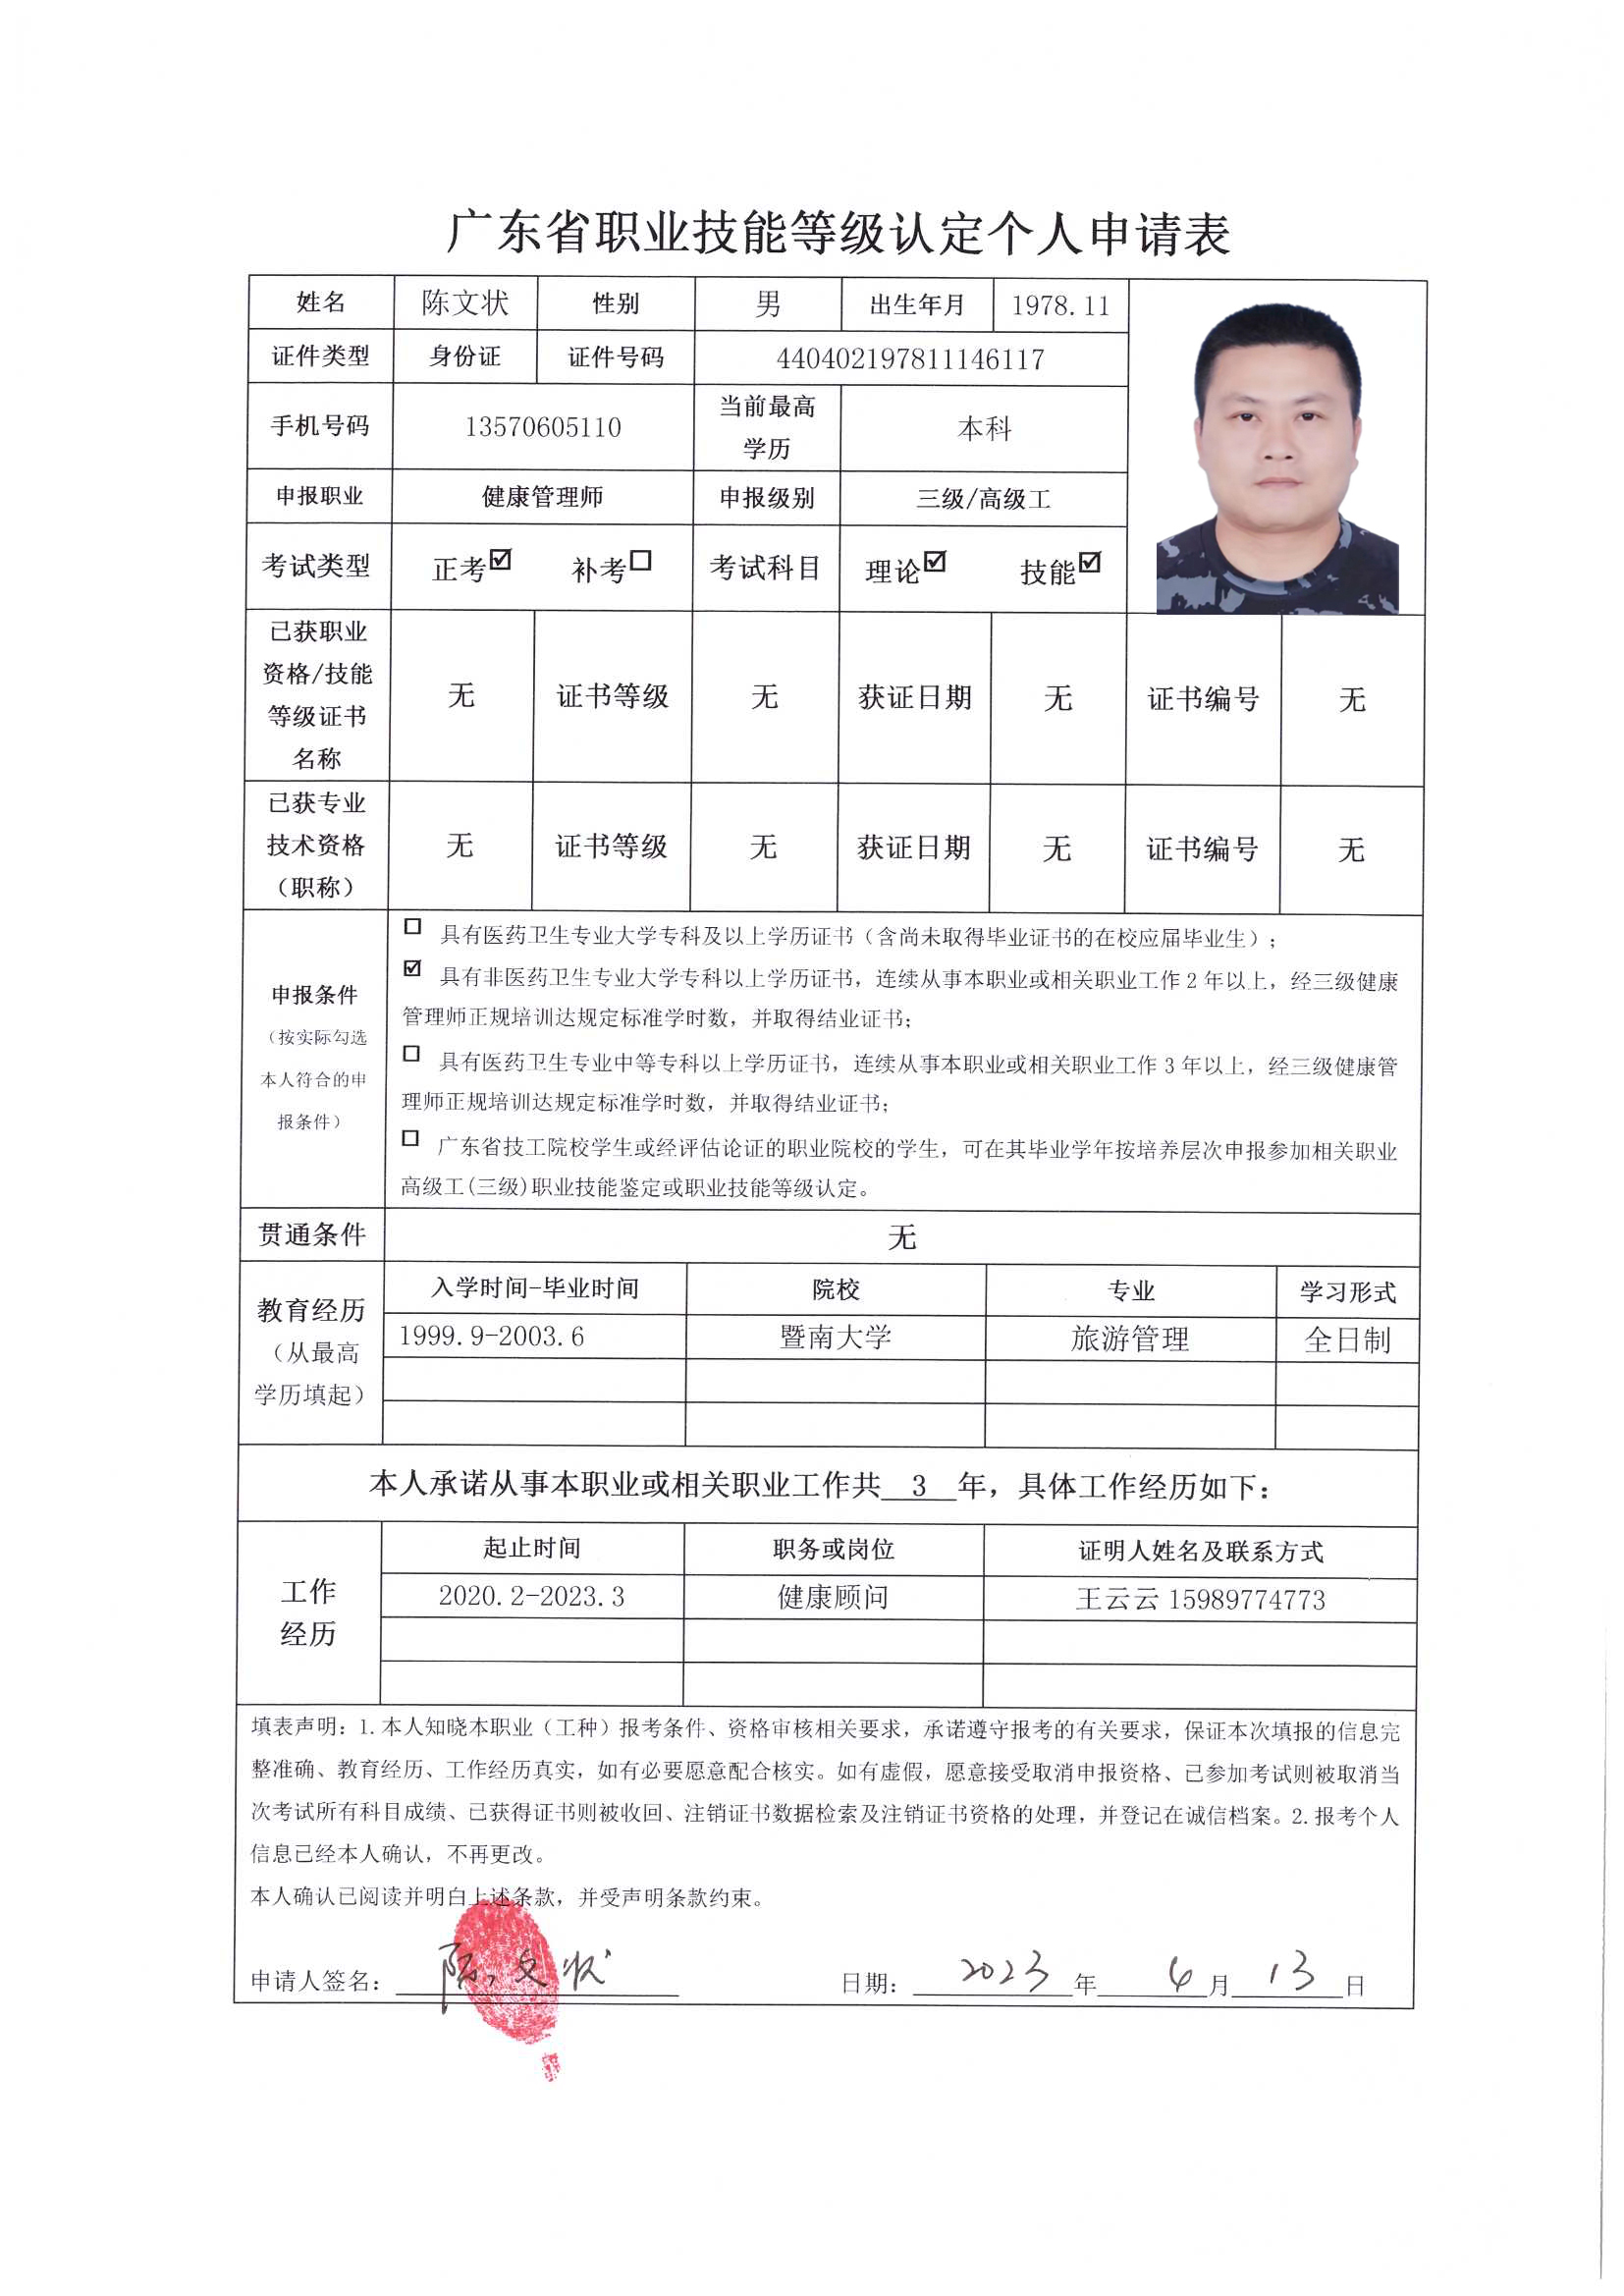 广东省职业技能等级认定个人申请表
姓名 陈文状 性别 男 出生年月 1978.11
证件类型 身份证 证件号码 440402197811146117
手机号码 13570605110 当前最高学历 本科
申报职业 健康管理师 申报级别 三级/高级工
考试类型 正考☑ 补考☐ 考试科目 理论☑ 技能☑
已获职业资格/技能等级证书名称 无 证书等级 无 获证日期 无 证书编号 无
已获专业技术资格（职称） 无 证书等级 无 获证日期 无 证书编号 无
申报条件
（按实际勾选
本人符合的申
报条件）
☐ 具有医药卫生专业大学专科及以上学历证书（含尚未取得毕业证书的在校应届毕业生）；
☑ 具有非医药卫生专业大学专科以上学历证书，连续从事本职业或相关职业工作 2 年以上，经三级健康
管理师正规培训达规定标准学时数，并取得结业证书；
☐ 具有医药卫生专业中等专科以上学历证书，连续从事本职业或相关职业工作 3 年以上，经三级健康管
理师正规培训达规定标准学时数，并取得结业证书；
☐ 广东省技工院校学生或经评估论证的职业院校的学生，可在其毕业学年按培养层次申报参加相关职业
高级工(三级)职业技能鉴定或职业技能等级认定。
贯通条件 无
教育经历
（从最高
学历填起）
入学时间-毕业时间 院校 专业 学习形式
1999.9-2003.6 暨南大学 旅游管理 全日制
本人承诺从事本职业或相关职业工作共 3 年，具体工作经历如下：
工作
经历
起止时间 职务或岗位 证明人姓名及联系方式
2020.2-2023.3 健康顾问 王云云 15989774773
填表声明：1.本人知晓本职业（工种）报考条件、资格审核相关要求，承诺遵守报考的有关要求，保证本次填报的信息完
整准确、教育经历、工作经历真实，如有必要愿意配合核实。如有虚假，愿意接受取消申报资格、已参加考试则被取消当
次考试所有科目成绩、已获得证书则被收回、注销证书数据检索及注销证书资格的处理，并登记在诚信档案。2.报考个人
信息已经本人确认，不再更改。
本人确认已阅读并明白上述条款，并受声明条款约束。
申请人签名： 陈文状 日期： 2023 年 4 月 13 日